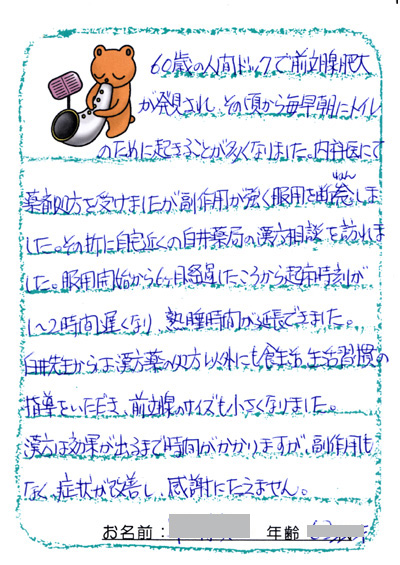 60歳の人間ドックで前立腺肥大
が発見され、その頃から毎早朝にトイレ
のために起きることが多くなりました。内科医にて
薬剤処方を受けましたが副作用が強く服用を断念しま
ねん
した。その折に自宅近くの臼井薬局の漢方相談を訪れま
した。服用開始から6ヶ月経過したころから起床時刻が
1〜2時間遅くなり、熟睡時間が延長できました。
臼井先生からは漢方薬の処方以外にも食生活、生活習慣の
指導をいただき、前立腺のサイズも小さくなりました。
漢方は効果が出るまで時間がかかりますが、副作用も
なく、症状が改善し、感謝にたえません。
お名前: 年齢